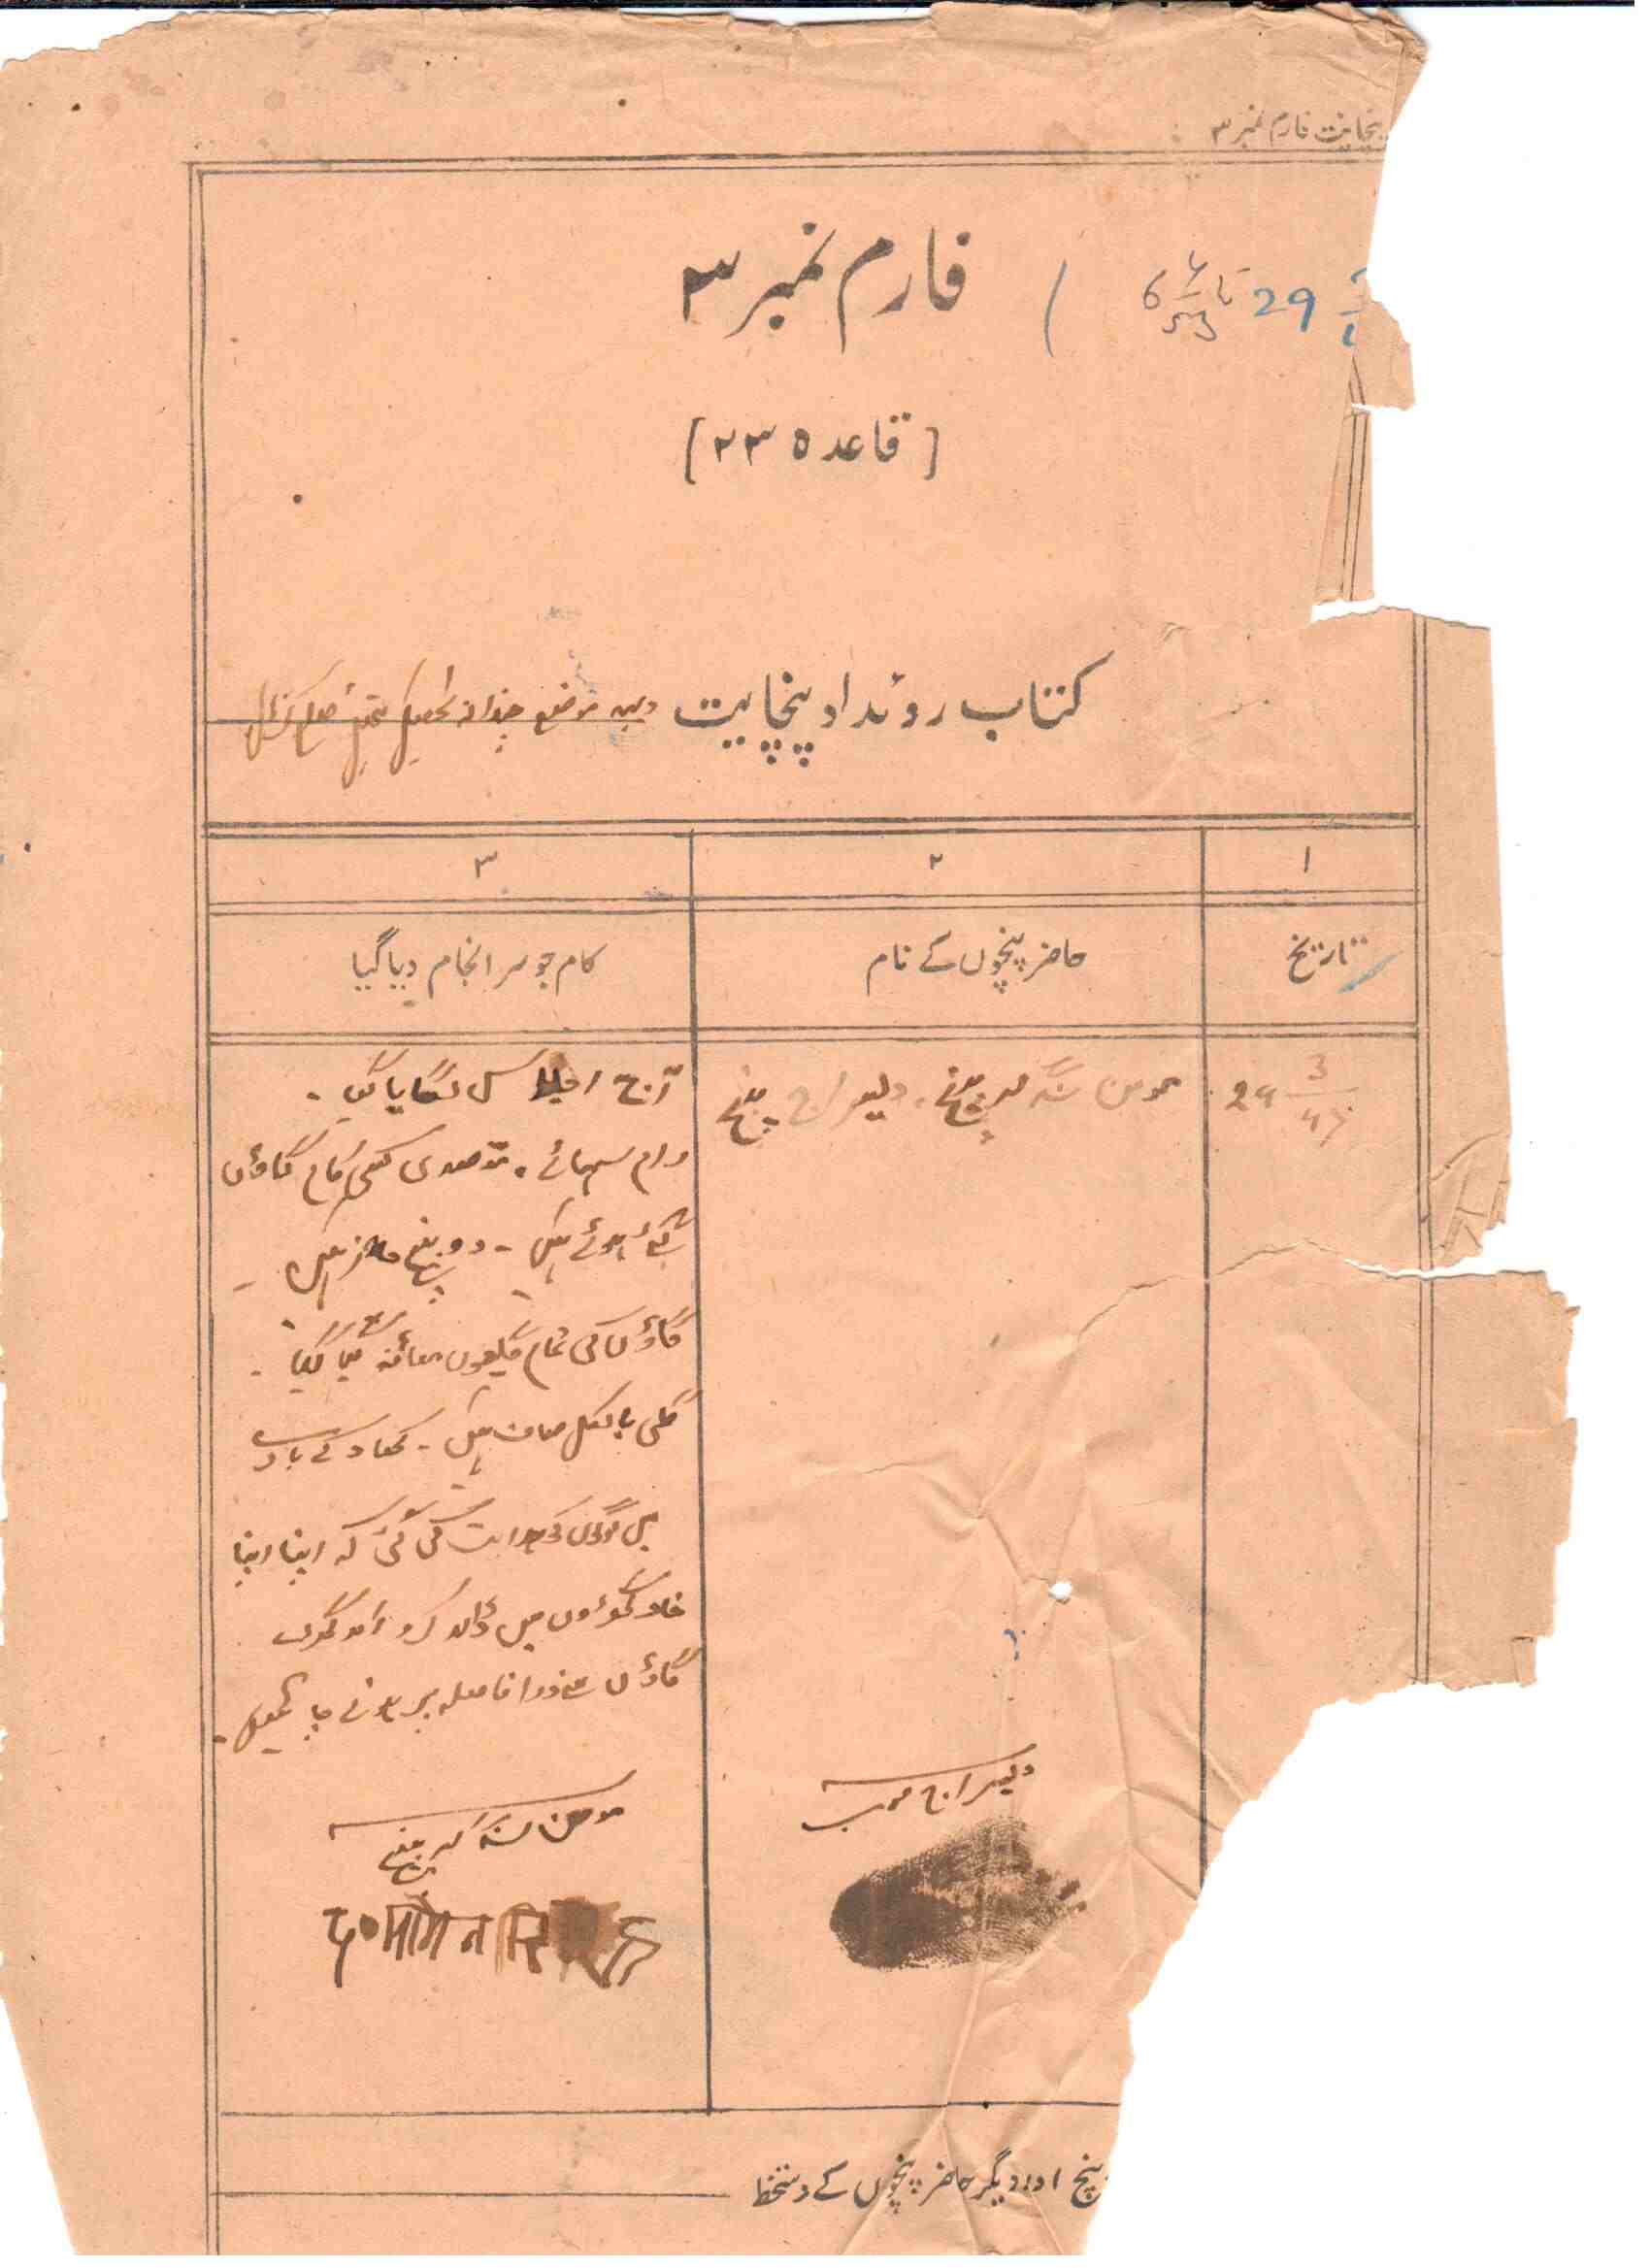 پنچایت فارم نمبر ۳
29 تا 6
فارم نمبر ۳
[قاعدہ ۲۳۵]
کتاب روئداد پنچایت دیہہ موضع تحصیل ضلع کرنال
۱ ۲ ۳
تاریخ
حاضر پنچوں کے نام
کام جو سر انجام دیا گیا
29 3/47
مومن سنگھ سرپنچ۔ دلیراج پنچ
آج اجلاس لگایا گیا۔
رام سہائے۔ متصدی کسی کام گاؤں
گئے ہوئے ہیں۔ دو پنچ حاضر ہیں۔
گاؤں کی تمام گلیوں معائنہ کیا گیا۔
گلی بالکل صاف ہیں۔ کھاد کے بارے
میں لوگوں کو ہدایت کی گئی کہ اپنا اپنا
کھاد میں ڈالا کرو اور
گاؤں سے ذرا فاصلہ پر ہونے چاہئیں۔
دلیراج
مومن سنگھ سرپنچ
द० मोमन सिंह
پنچ اور دیگر حاضر پنچوں کے دستخط